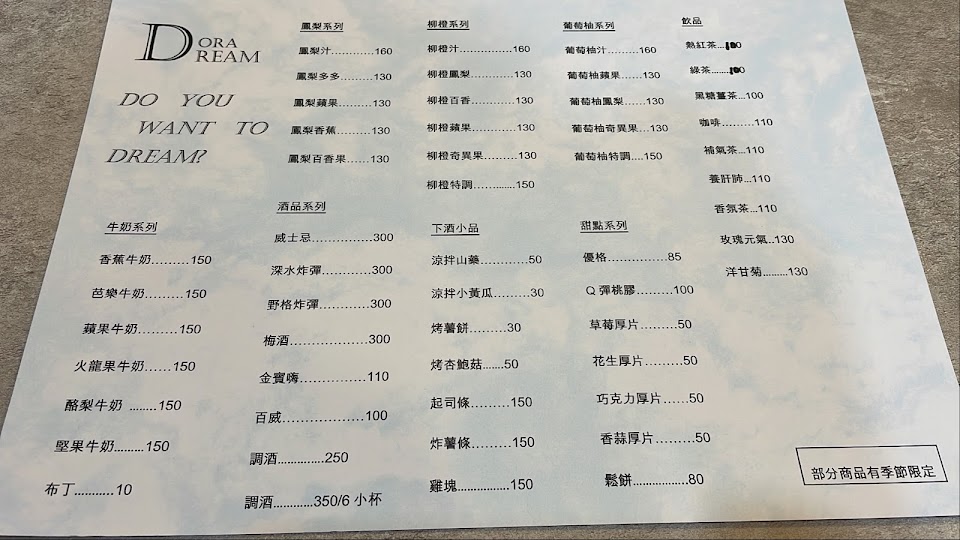 DORA
DREAM
DO YOU
WANT TO
DREAM?
鳳梨系列
鳳梨汁............160
鳳梨多多.........130
鳳梨蘋果.........130
鳳梨香蕉.........130
鳳梨百香果......130
柳橙系列
柳橙汁...............160
柳橙鳳梨............130
柳橙百香............130
柳橙蘋果............130
柳橙奇異果.........130
柳橙特調............150
葡萄柚系列
葡萄柚汁.........160
葡萄柚蘋果......130
葡萄柚鳳梨......130
葡萄柚奇異果...130
葡萄柚特調....150
飲品
熱紅茶...100
綠茶.......100
黑糖薑茶...100
咖啡.........110
補氣茶...110
養肝肺...110
香氛茶...110
玫瑰元氣..130
洋甘菊.........130
牛奶系列
香蕉牛奶.........150
芭樂牛奶.........150
蘋果牛奶.........150
火龍果牛奶......150
酪梨牛奶 ........150
堅果牛奶.........150
布丁...........10
酒品系列
威士忌...............300
深水炸彈............300
野格炸彈............300
梅酒..................300
金賓嗨...............110
百威..................100
調酒..............250
調酒............350/6 小杯
下酒小品
涼拌山藥............50
涼拌小黃瓜.........30
烤薯餅.........30
烤杏鮑菇.......50
起司條.........150
炸薯條.........150
雞塊................150
甜點系列
優格...............85
Q 彈桃膠.........100
草莓厚片.........50
花生厚片.........50
巧克力厚片......50
香蒜厚片.........50
鬆餅................80
部分商品有季節限定